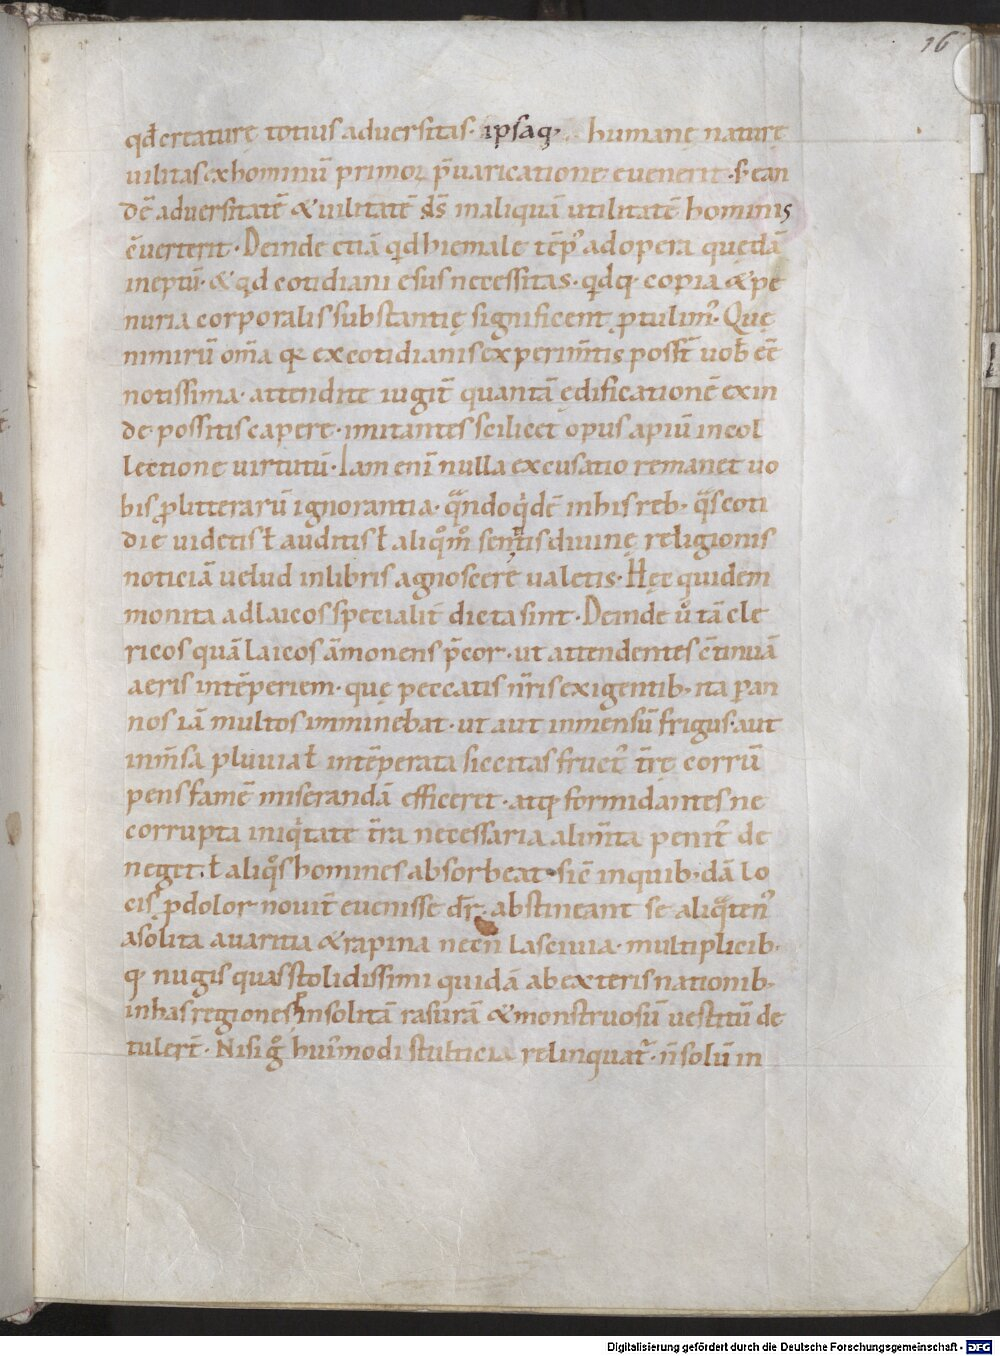 16
qđ certaturę totius aduersitas· ipsaq; humanę naturę
uilitas ex hominū primoꝝ p̄uaricatione euenerit· s; ean
dē aduersitatē & uilitatē d̄s in aliquā utilitatē hominis
c̄uerterit· Deinde etiā qđ hiemale tēp᷒ ad opera quędā
ineptū· & qđ cotidiani esus necessitas· qđq; copia & pe
nuria corporalis substantię significent ꝓtulim᷒· Quę
nimirū om̄a quę ex cotidianis experim̄tis poss̄t uob̄ ee̅
notissima· attendite iugit̄ quantā ędificationē exin
de possitis capere· imitantes scilicet opus apiū in col
lectione uirtutū· Iam eni̅ nulla excusatio remanet uo
bis ꝓ litterarū ignorantia· qͣndoqͥdē in his reb; qͣs coti
die uidetis ł auditis ł aliqͦm̊ sentitis diuinę religionis
noticiā uelud in libris agnoscere ualetis· Hęc quidem
monita ad laicos specialit̄ dicta sint· Deinde ů tā cle
ricos quā laicos āmonens p̄cor· ut attendentes c̄tinuā
aeris intēperiem· quę peccatis nr̄is exigentib; ita ꝑ an
nos iā multos imminebat· ut aut inmensū frigus· aut
inm̄sa pluuia ł intēperata siccitas fruct᷒ tr̄ę corrū
pens famē miserandā efficeret· atq; formidantes ne
corrupta iniqͥtate tr̄ra necessaria alim̄ta penit᷒ de
neget· ł aliqͦs homines absorbeat· sic̄ in quib;dā lo
cis ꝓ dolor nouit̄ euenisse dr̄· abstineant se aliqͣten᷒
a solita auaritia & rapina necn̄ lasciuia· multiplicib;
q; nugis quas stolidissimi quidā ab exteris nationib;
in has regiones ꝑ insolitā rasurā & monstruosū uestitū de
tuler̄t· Nisi gͦ hui᷒modi stulticia relinquat᷑· n̄ solū in
Digitalisierung gefördert durch die Deutsche Forschungsgemeinschaft - DFG